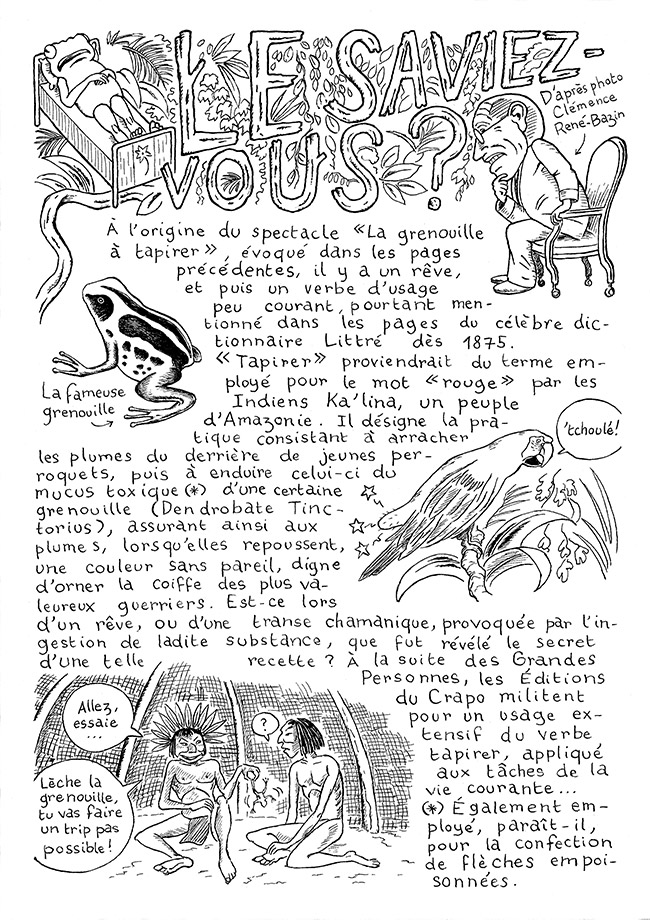 LE SAVIEZ-
VOUS?
D'après photo
Clémence
René-Bazin
À l'origine du spectacle «La grenouille
à tapirer», évoqué dans les pages
précédentes, il y a un rêve,
et puis un verbe d'usage
peu courant, pourtant men-
tionné dans les pages du célèbre dic-
tionnaire Littré dès 1875.
«Tapirer» proviendrait du terme em-
ployé pour le mot «rouge» par les
Indiens Ka'lina, un peuple
d'Amazonie. Il désigne la pra-
tique consistant à arracher
les plumes du derrière de jeunes per-
roquets, puis à enduire celui-ci du
mucus toxique (*) d'une certaine
grenouille (Dendrobate Tinc-
torius), assurant ainsi aux
plumes, lorsqu'elles repoussent,
une couleur sans pareil, digne
d'orner la coiffe des plus va-
leureux guerriers. Est-ce lors
d'un rêve, ou d'une transe chamanique, provoquée par l'in-
gestion de ladite substance, que fut révélé le secret
d'une telle recette? À la suite des Grandes
Personnes, les Éditions
du Crapo militent
pour un usage ex-
tensif du verbe
tapirer, appliqué
aux tâches de la
vie courante...
(*) Également em-
ployé, paraît-il,
pour la confection
de flèches empoi-
sonnées.
La fameuse
grenouille
'tchoulé!
Allez,
essaie
...
?
Lèche la
grenouille,
tu vas faire
un trip pas
possible!